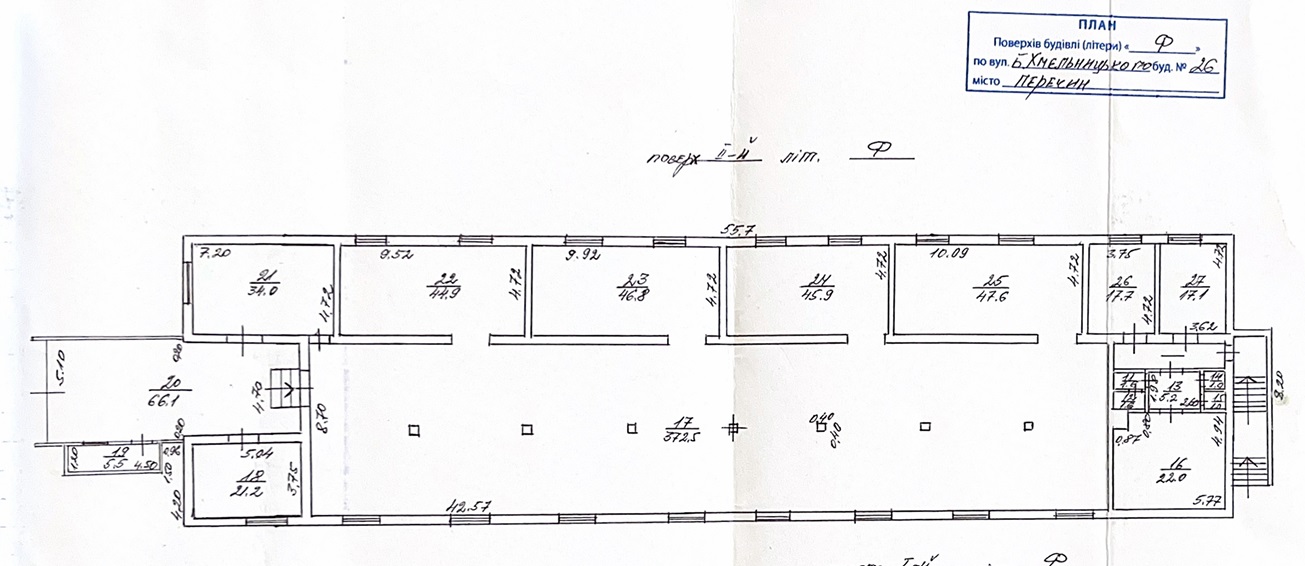 ПЛАН
Поверхів будівлі (літери) « Ф »
по вул. Б.Хмельницького буд. № 26
місто Перечин
поверх ІІ-й літ. Ф
55.7
7.20
21
34.0
4.72
9.52
22
44.9
4.72
9.92
23
46.8
4.72
24
45.9
4.72
10.09
25
47.6
4.72
3.75
26
17.7
4.72
27
17.1
4.72
3.62
5.10
20
66.1
4.70
8.70
17
372.5
0.40
0.40
13
5.2
8.20
0.87
4.24
16
22.0
5.77
19
5.5
4.50
1.20
1.50
4.20
5.04
18
21.2
3.75
42.57
Ф